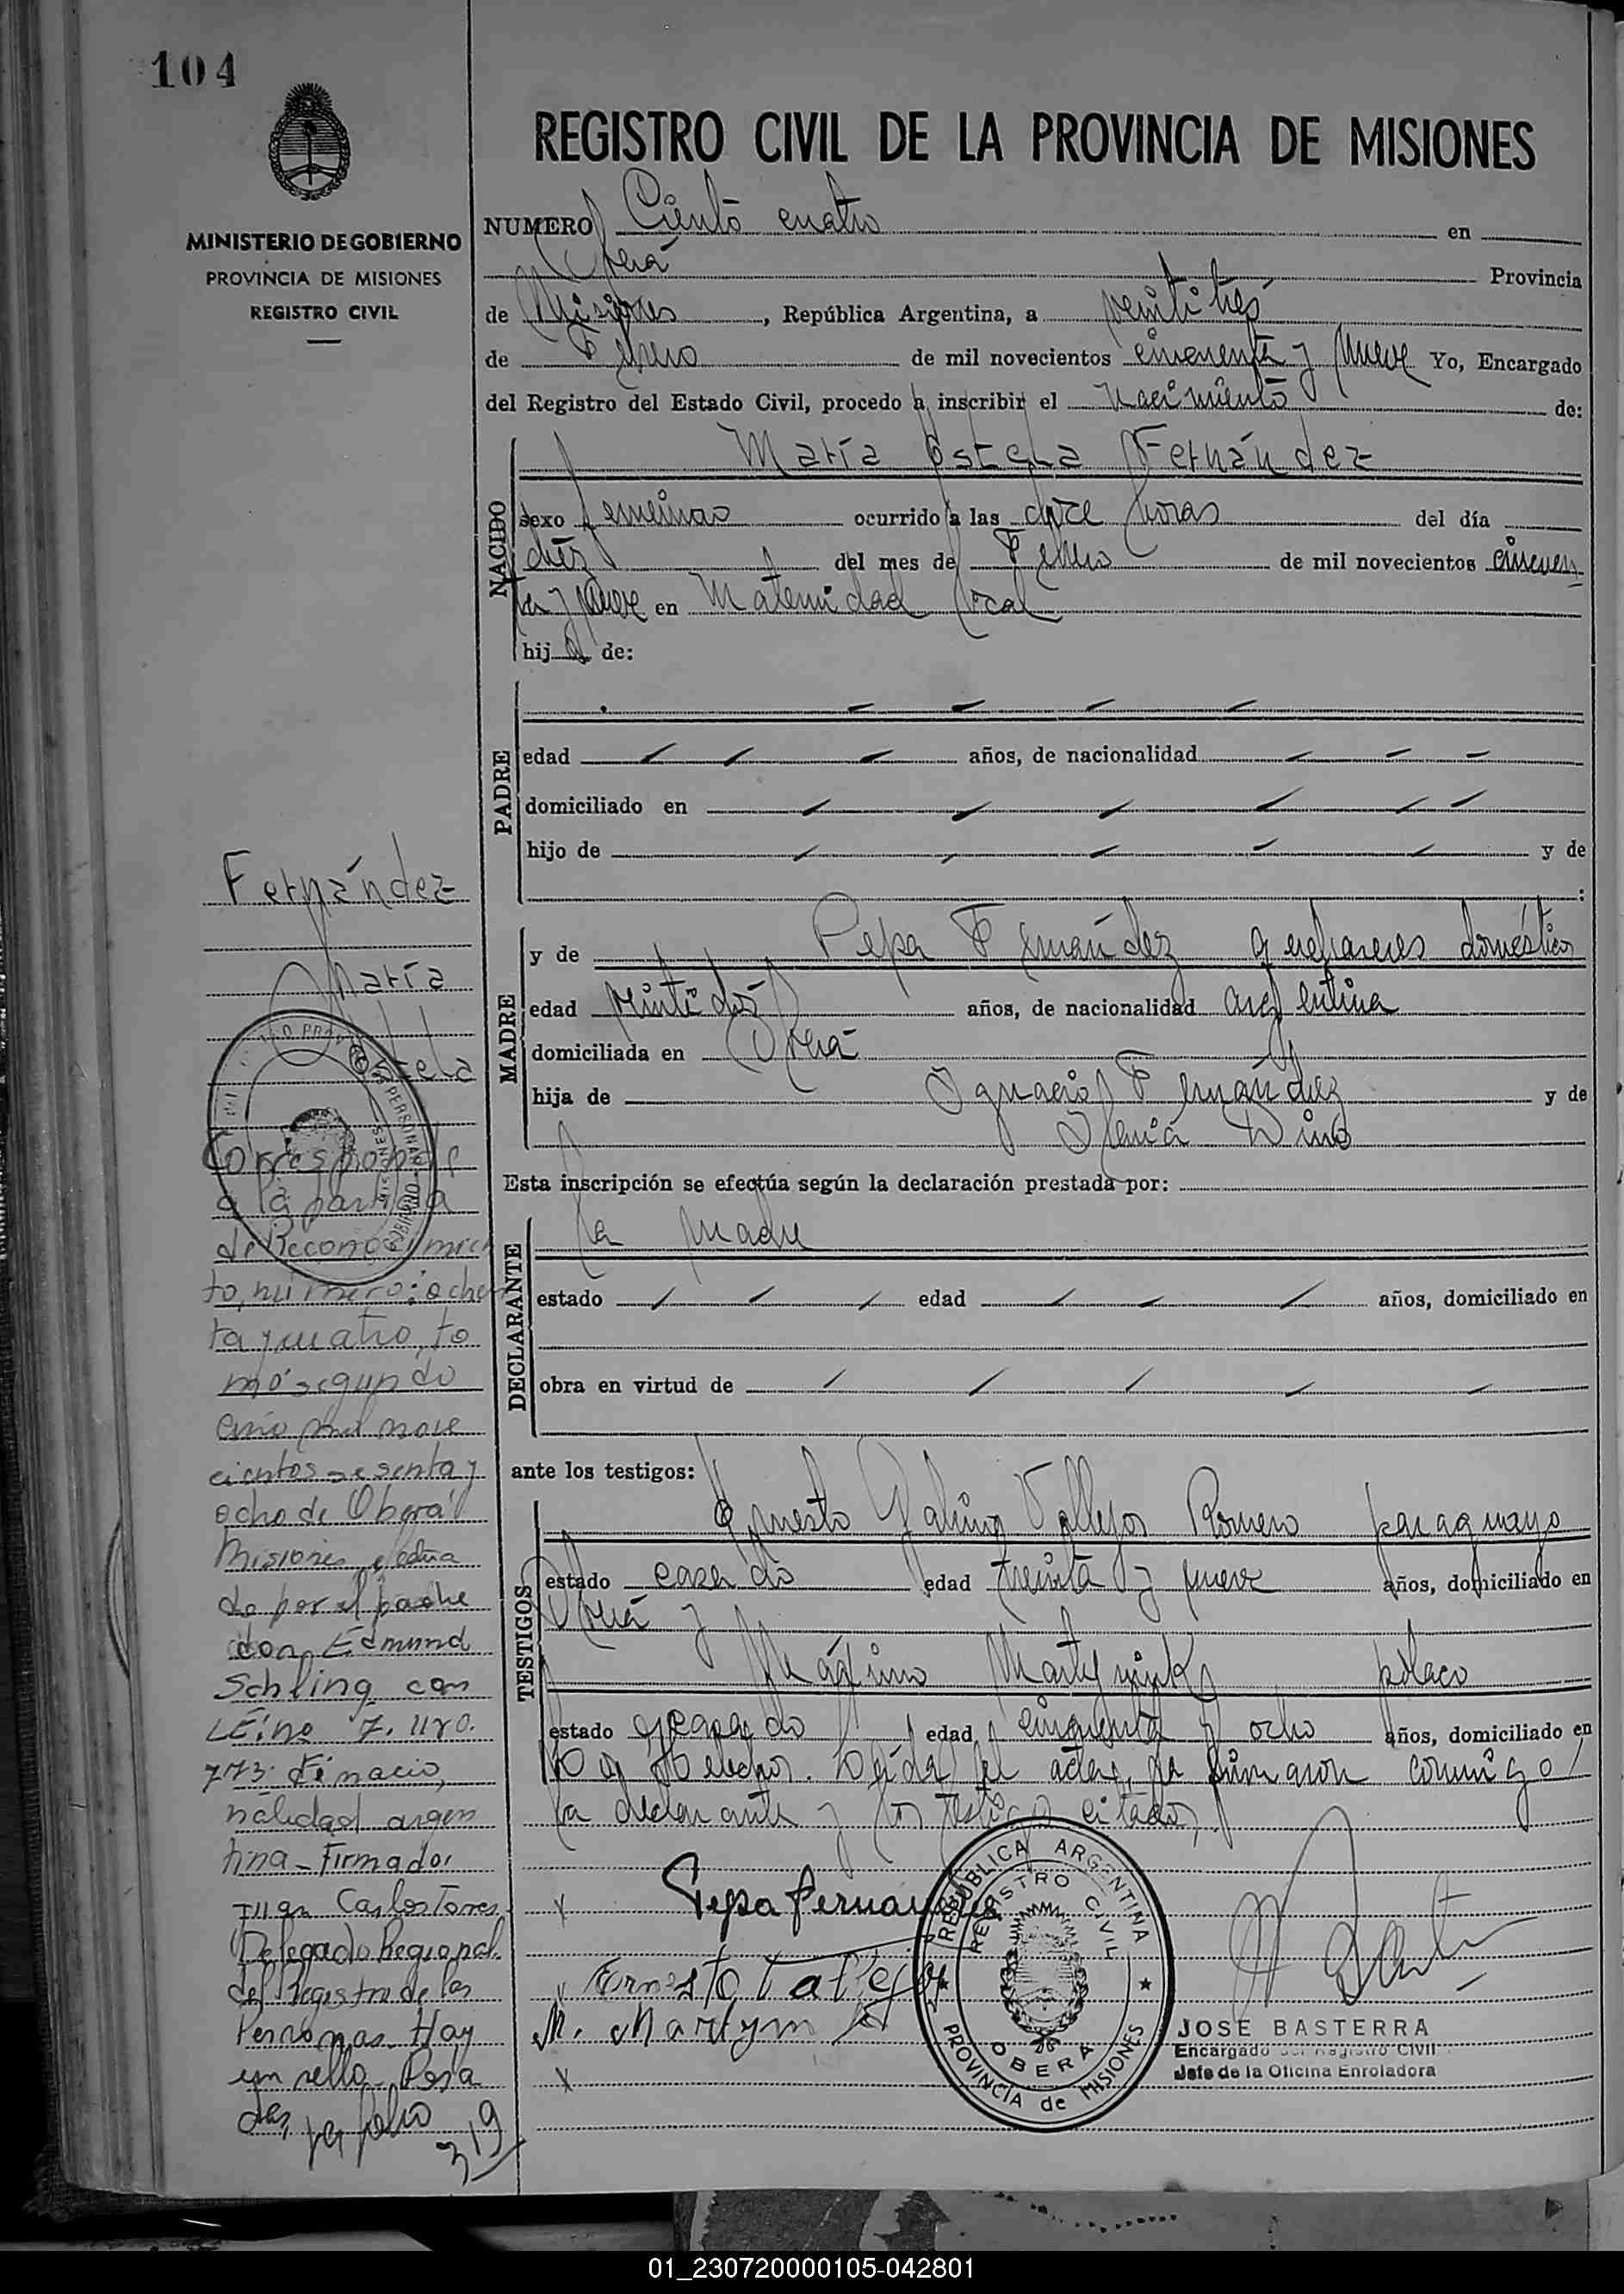 104
MINISTERIO DE GOBIERNO
PROVINCIA DE MISIONES
REGISTRO CIVIL
REGISTRO CIVIL DE LA PROVINCIA DE MISIONES
NUMERO Ciento cuatro en
Oberá Provincia
de Misiones, República Argentina, a veintitres
de Febrero de mil novecientos cincuenta y nueve Yo, Encargado
del Registro del Estado Civil, procedo a inscribir el nacimiento de:
NACIDO
María Estela Fernández
sexo femenino ocurrido a las doce horas del día
diéz del mes de Febrero de mil novecientos cincuen
ta y nueve en Maternidad local
hija de:
PADRE
edad años, de nacionalidad
domiciliado en
hijo de y de
:
MADRE
y de Pepa Fernández quehaceres domésticos
edad veintidós años, de nacionalidad argentina
domiciliada en Oberá
hija de Ignacio Fernández y de
Esta inscripción se efectúa según la declaración prestada por:
DECLARANTE
la madre
estado edad años, domiciliado en
obra en virtud de
ante los testigos:
TESTIGOS
Ernesto Vallejos Romero paraguayo
estado casado edad treinta y nueve años, domiciliado en
Oberá y
Máximo polaco
estado casado edad cincuenta y ocho años, domiciliado en
Leída el acta, la firmaron conmigo
la declarante y los testigos citados,
Pepa Fernandez
Ernesto Vallejos
M. Martyn
REPÚBLICA ARGENTINA
REGISTRO CIVIL
OBERA
PROVINCIA de MISIONES
JOSE BASTERRA
Encargado del Registro Civil
Jefe de la Oficina Enroladora
Fernández
María
Estela
Corresponde
a la partida
de Reconocimien
to, número: ochen
ta y cuatro, to
mo segundo
año mil nove
cientos sesenta y
ocho de Oberá
Misiones, efectua
do por el padre
don Edmund
Schling con
LE: no 7.
773 nacio,
nalidad argen
tina - Firmado:
Juan Carlos Torres
Delegado Regional
del Registro de las
Personas. Hay
un sello. Posa
das,
319
01_230720000105-042801